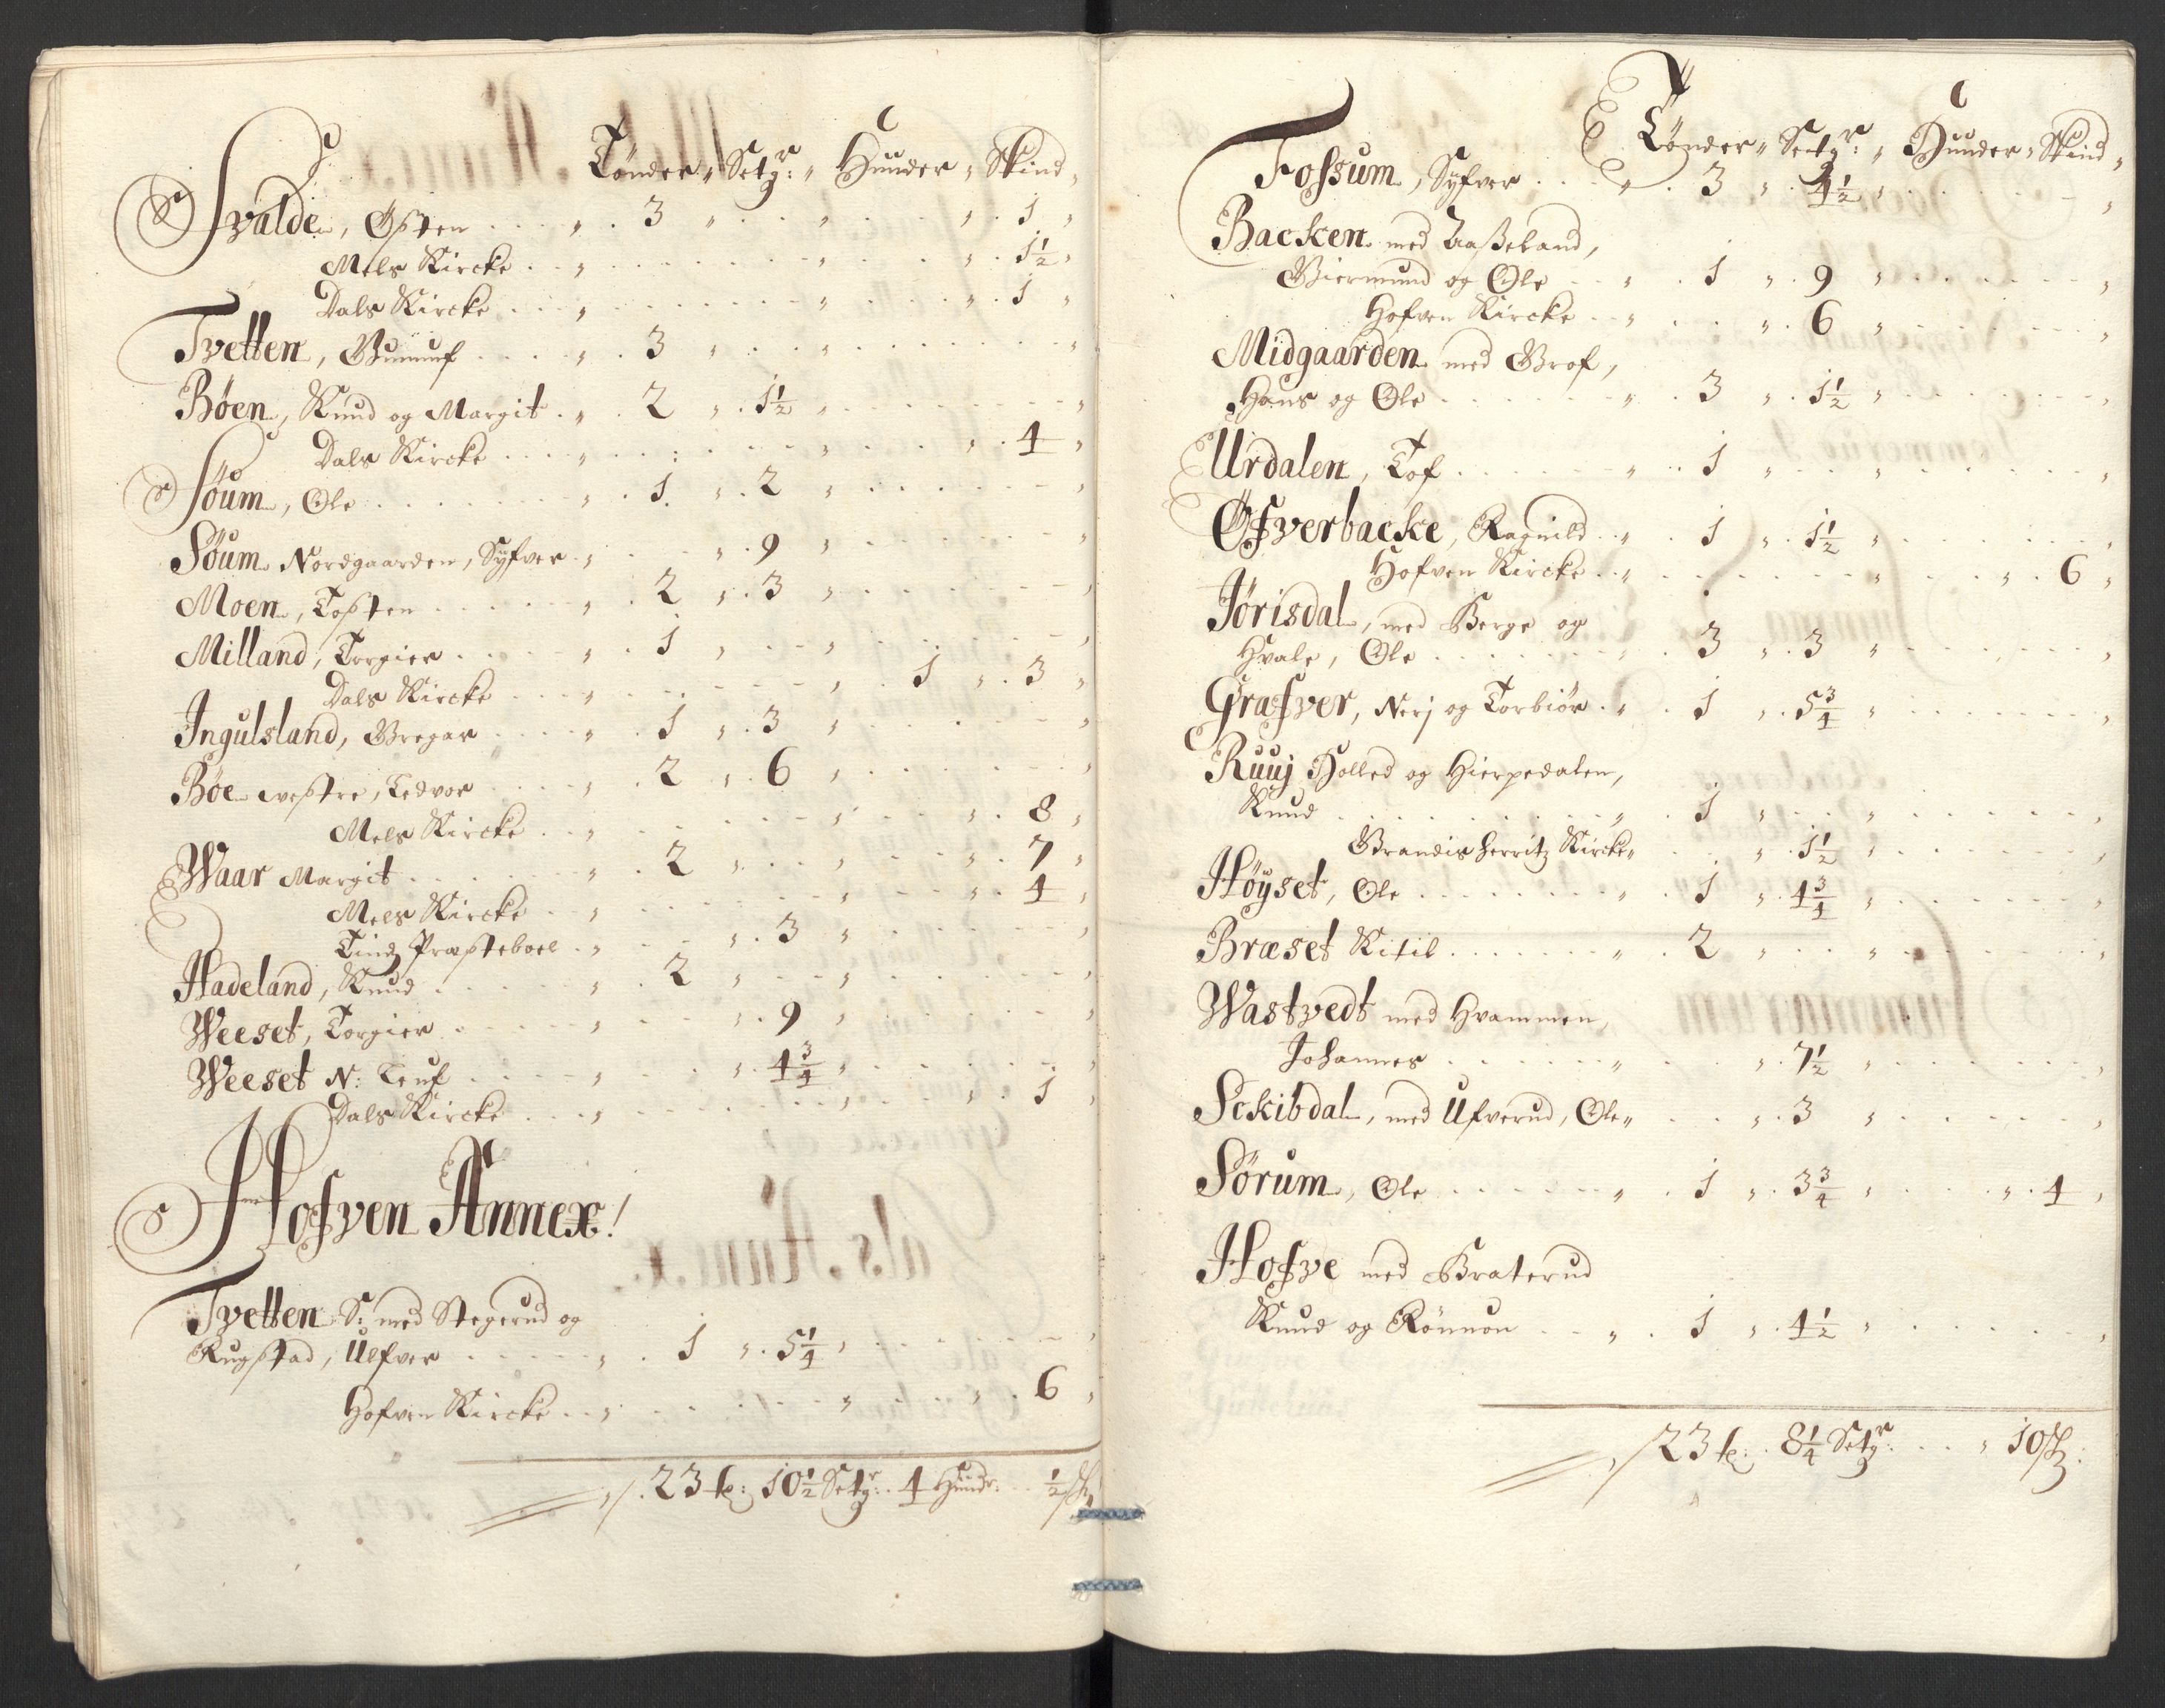 Tønder „ Setgr: „ Hunder „ Skind „
Svalde, Østen . . . „ . 3 „ . . „ . . . „ . 1 „
Mels Kircke . . „ . . . „ . . . „ . 1½ „
Dals Kircke . . . „ . . . „ . . . „ . 1 „
Tvetten, Gunnuf . . . . „ . 3 „ . . „ . . . „
Bøen, Knud og Margit . „ . 2 „ . 1½ „ . . . „
Dals Kircke . . . . „ . . : . . „ . . . „ . 4 „
Søum, Ole . . . . . „ . 1 „ . 2 „ . . . „
Søum Nordgaarden, Syfver . „ . . „ . 9 „ . . . „
Moen, Tosten . . . . . „ . 2 „ . 3 „ . . . „
Milland, Torgier . . . . „ . 1 „ . . „ . . . „
Dals Kircke . . . „ . . . „ . 1 „ . 3 „
Ingulsland, Gregar . . . . „ . 1 „ . 3 „ . . . „
Böe westre, Tedvor . . . . „ . 2 „ . 6 „ . . . „
Mels Kircke . . „ . . . „ . . . „ . 8 „
Waar Margit . . . . . „ . 2 „ . . „ . . . „ . 7 „
Mels Kircke . . „ . . . „ . . . „ . 4 „
Tindz Præsteboel . „ . . „ . 3 „ . . . „
Hadeland, Knud . . . . . „ . 2 „ . . „ . . . „
Weeset, Torgier . . . . . „ . . „ . 9 „ . . . „
Weeset N: Leuf . . . . „ . . „ . 4¾ „ . . . „
Dals Kircke . . . „ . . . „ . . . „ . 1 „
Hofven Annex!
Tvetten S: med Stegerud og
Rugstad, Ulfver . . . . . „ . 1 „ . 5¼ „ . . . „
Hofven Kircke . . „ . . . „ . . . „ . 6 „
/. 23 t: 10½ Setgr: . 4 Hundr: . . ½ sk:
Tönder „ Setgr: „ Hunder „ Skind „
Fossum, Syfver . . . „ . 3 „ . 4½ „ . . . „
Backen med Aaseland,
Giermund og Ole . . „ . 1 „ . 9 „ . . . „
Hofven Kircke . . „ . . „ . 6 „ . . . „
Midgaarden med Grof,
Hans og Ole . . . . . „ . 3 „ . 1½ „ . . . „
Urdalen, Tof . . . . . „ . 1 „ . . „ . . . „
Ofverbacke, Ragnild . . „ . 1 „ . 1½ „ . . . „
Hofven Kircke . . „ . . . „ . . . „ . 6 „
Jörisdal, med Berge og
Hvale, Ole . . . . . „ . 3 „ . 3 „ . . . „
Græfver, Nerj og Torbiör . „ . 1 „ . 5¾ „ . . . „
Ruuj Holled og Hierpedalen,
Knud . . . . . „ . 1 „ . . „ . . . „
Brandis herritz Kircke „ . . „ . 1½ „ . . . „
Höyset, Ole . . . . . „ . 1 „ . 4¾ „ . . . „
Bræset Kitil . . . . . „ . 2 „ . . „ . . . „
Wastvedt med Hvammen,
Johannes . . . . . „ . . „ . 7½ „ . . . „
Sckibdal, med Ufverud, Ole „ . . „ . 3 „ . . . „
Sörum, Ole . . . . . „ . 1 „ . 3¾ „ . . . „ . 4 „
Hofve med Braterud
Knud og Rönnou . . „ . 1 „ . 4½ „ . . . „
/. 23 t: . 8¼ Setgr: . . „ 10 sk: